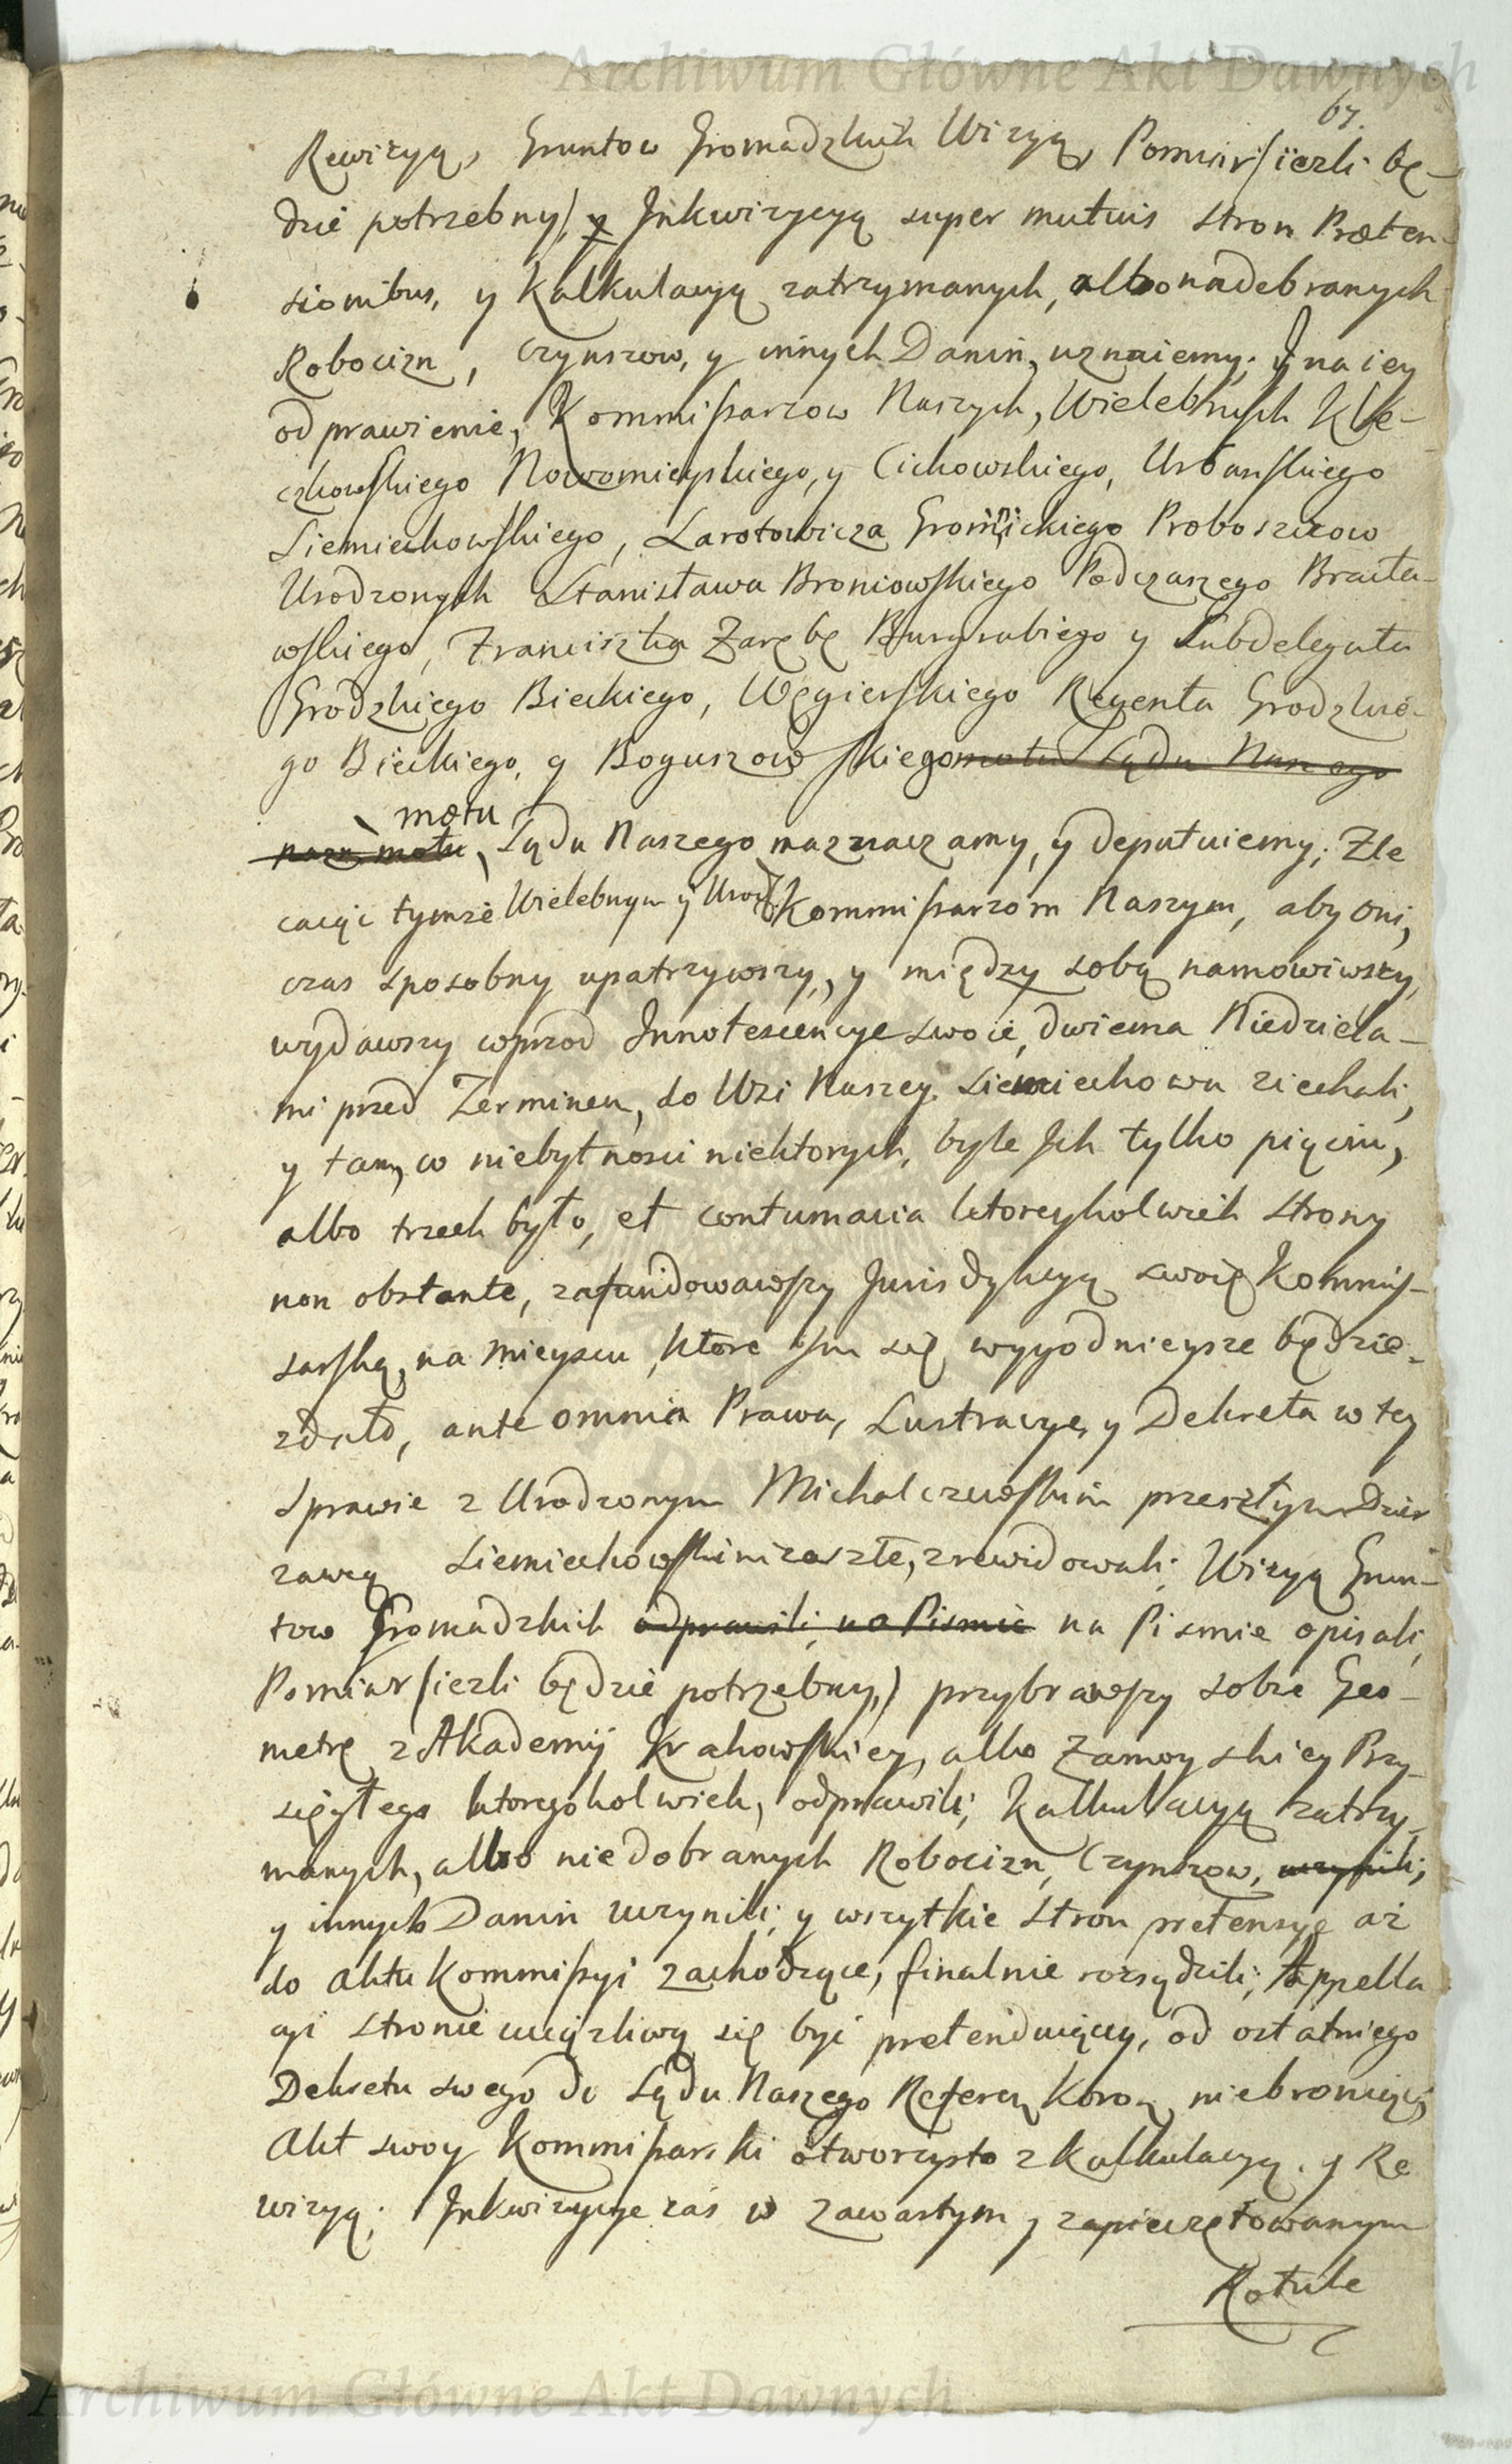 Archiwum Główne Akt Dawnych
67.
Rewizyą, Gruntow Gromadzkich Wizyą, Pomiar/ieżli bę-
dzie potrzebny/, y Inkwizycyą super mutuis stron Præten-
sionibus, y Kalkulacyą zatrzymanych, albo nadebranych
Robocizn, czynszow, y innych Danin, uznaiemy; Y na iey
odprawienie, Kommissarzow Naszych, Wielebnych Kle-
czkowskiego Nowomieyskiego, y Cichowskiego, Urbanskiego
Siemiechowskiego, Larotowicza Gromnickiego Proboszczow
Urodzonych Stanisława Broniowskiego Podczaszego Bracła-
wskiego, Franciszka Zarębę Burgrabiego y Subdelegata
Grodzkiego Bieckiego, Węgierskiego Regenta Grodzkie-
go Bieckiego, y Boguszowskiego motu Sądu Naszego
motu
motu, Sądu Naszego naznaczamy, y deputuiemy; Zle
caiąc tymże Wielebnym y Urodz. Kommissarzom Naszym, aby oni,
czas sposobny upatrzywszy, y między sobą namowiwszy,
wydawszy wprzod Innotescencye swoie, dwiema Niedziela-
mi przed Terminem, do Wsi Naszey Siemiechowa ziechali,
y tam, w niebytnosci niektorych, byle Ich tylko pięciu,
albo trzech było, et contumacia ktoreykolwiek strony
non obstante, zafundowawszy Jurisdykcyą swoię Kommis-
sarską, na mieyscu, ktore im się wygodnieysze będzie
zdało, ante omnia Prawa, Lustracye, y Dekreta w tey
Sprawie z Urodzonym Michalczewskim przeszłym Dzier
zawcą Siemiechowskim zaszłe, zrewidowali; Wizyą Grun-
tow Gromadzkich odprawili, na Pismie na Pismie opisali,
Pomiar/ieżli będzie potrzebny,/ przybrawszy sobie Geo-
metrę z Akademij Krakowskiey, albo Zamoyskiey Przy-
sięgłego ktoregokolwiek, odprawili; Kalkulacyą zatrzy-
manych, albo niedobranych Robocizn, Czynszow, uczynili;
y innych Danin uczynili; y wszytkie stron pretensye aż
do Aktu Kommissyi zachodzące, finalnie rozsądzili; Appella
cyi stronie uciążliwą się być pretenduiącey, od ostatniego
Dekretu swego do Sądu Naszego Referen. Koron. niebroniąc;
Akt swoy Kommissarski otworzysto z Kalkulacyą, y Re
wizyą; Inkwizycye zaś w zawartym y zapieczętowanym
Rotule
Archiwum Główne Akt Dawnych